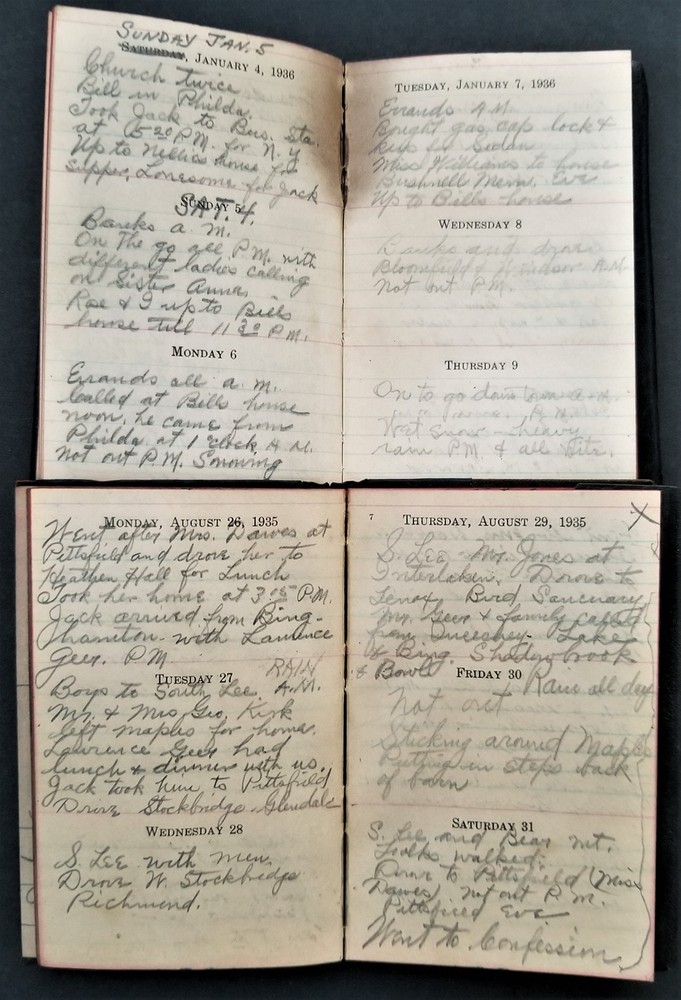 SUNDAY JAN. 5
SATURDAY, JANUARY 4, 1936
Church twice
Bill in Philda.
Took Jack to Bus. Sta.
at 5 20 P.M. for N.Y
Up to Nellies house for
supper. Lonesome for Jack
SUNDAY 5
SAT. 4.
Banks a. M.
On the go all P.M. with
different ladies calling
on Sister Anna.
Rae & I up to Bills
house till 11 30 P.M.
MONDAY 6
Errands all a. M.
Called at Bills house
noon. he came from
Philda at 1 o'clock A.M.
Not out P.M. Snowing
TUESDAY, JANUARY 7, 1936
Errands A M.
Bought gas cap lock &
keys for Sedan
Miss Williams to house
Bushnell Mem. Eve
Up to Bills house
WEDNESDAY 8
Banks and drove
Bloomfield & Windsor A.M.
Not out P.M.
THURSDAY 9
On to go down town a.m.
P.M.
Wet snow - heavy
rain PM & all
MONDAY, AUGUST 26, 1935
Went after Mrs. Dawes at
Pittsfield and drove her to
Heathen Hall for Lunch
Took her home at 3 05 P.M.
Jack arrived from Bing-
hamton - with Laurence
Geer. P.M.
RAIN
TUESDAY 27
Boys to South Lee. A.M.
Mr. & Mrs Geo. Kirk
left maples for home.
Lawrence Geer had
lunch & dinner with us.
Jack took him to Pittsfield
Drive Stockbridge - Glendale
WEDNESDAY 28
S. LEE with men.
Drove W. Stockbridge
Richmond.
7
THURSDAY, AUGUST 29, 1935
X
S. LEE, Mr. Jones at
Interlaken. Drove to
Lenox Bird Sancuary
Mr. Geer & family called
from Lake
& Bing. Shadowbrook
& Bowls
FRIDAY 30
Rain all day
Not out
Sticking around Maples
Putting in steps back
of barn
SATURDAY 31
S. Lee and Bear mt.
Folks walked.
Drove to Pittsfield (Miss
Dawes) Not out P.M.
Pittsfield Eve
Went to Confession